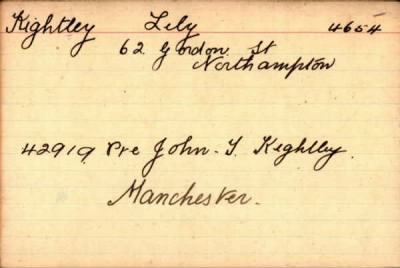 Kightley Lily 4654
62 Gordon St
Northampton
42919 Pre John. T. Kightley.
Manchester.